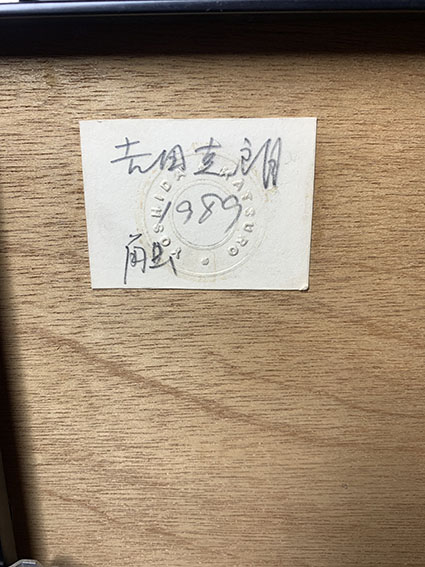 吉田克朗
1989
触
YOSHIDA KATSURO